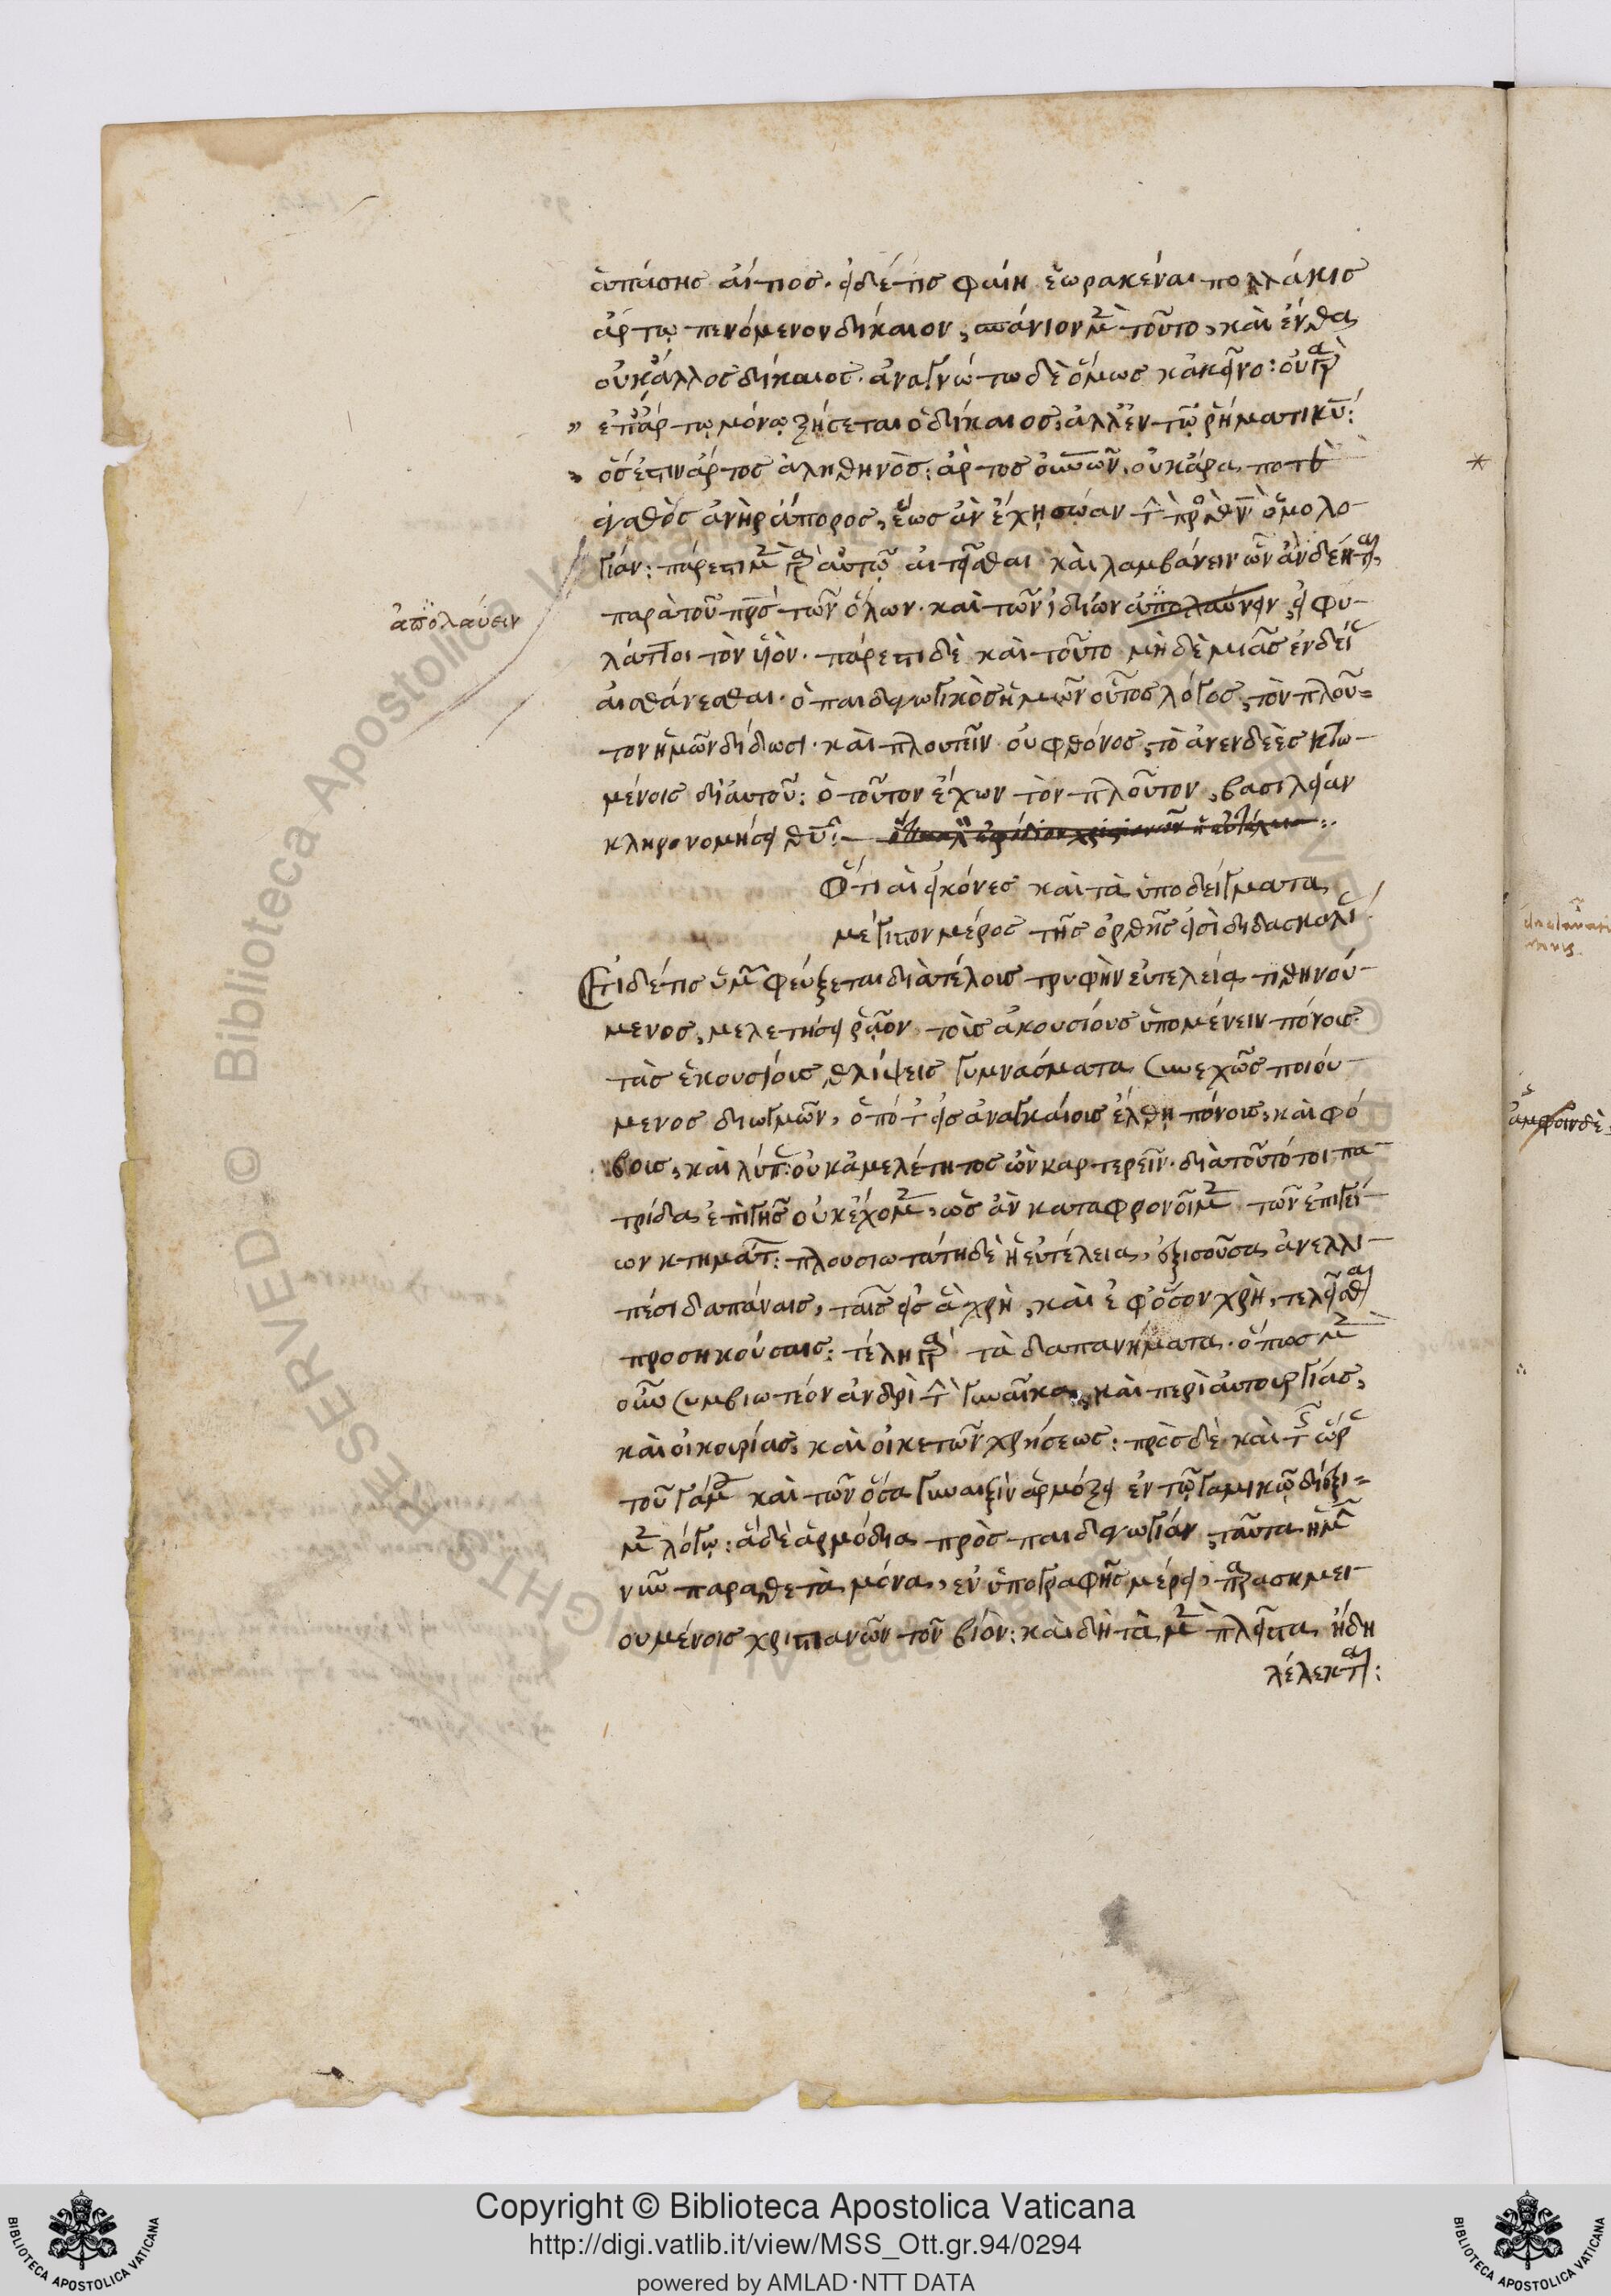 ἁπάσης αἴτιος. εἰ δέ τις φαίη ἑωρακέναι πολλάκις
ἄρτῳ πενόμενον δίκαιον, σπάνιον μὲν τοῦτο, καὶ ἔνθα
οὐκ ἄλλος δίκαιος. ἀναγνώτω δὲ ὅμως κἀκεῖνο: οὐ γὰρ
" ἐπ' ἄρτῳ μόνῳ ζήσεται ὁ δίκαιος, ἀλλ' ἐν τῷ ῥήματι κυ:
" ὅς ἐστιν ἄρτος ἀληθινὸς: ἄρτος οὐνῶν. οὐκ ἄρα ποτὲ
ἀγαθὸς ἀνὴρ ἄπορος, ἕως ἂν ἔχῃ σώαν τὴν πρὸς θν ὁμολο-
γίαν: πάρεστι μὲν γὰρ αὐτῷ αἰτεῖσθαι καὶ λαμβάνειν ὧν ἂν δέηται,
ἀπολαύειν
παρὰ τοῦ πρς τῶν ὅλων. καὶ τῶν ἰδίων εἰ φυ-
λάττοι τὸν υἱόν. πάρεστι δὲ καὶ τοῦτο μηδὲ μιᾶς ἐνδείας
αἰσθάνεσθαι. ὁ παιδαγωγικὸς ἡμῶν οὗτος λόγος, τὸν πλοῦ-
τον ἡμῶν δίδωσι. καὶ πλουτεῖν οὐ φθόνος, τὸ ἀνενδεὲς κτω-
μένοις δι' αὐτοῦ: ὁ τοῦτον ἔχων τὸν πλοῦτον, βασιλείαν
κληρονομήσει θυ:-
Ὅτι αἱ εἰκόνες καὶ τὰ ὑποδείγματα
μέγιστον μέρος τῆς ὀρθῆς εἰσὶ διδασκαλίας.
Εἰ δέ τις ὑμῶν φεύξεται διὰ τέλους τρυφὴν εὐτελείᾳ τιθηνού-
μενος, μελετήσει ῥᾷον τοὺς ἀκουσίους ὑπομένειν πόνους.
τὰς ἑκουσίοις θλίψεις γυμνάσματα συνεχῶς ποιού-
μενος διωγμῶν, ὁπότ' εἰς ἀναγκαίοις ἔλθῃ πόνους, καὶ φό
βοις, καὶ λύπας: οὐκ ἀμελέτητος ὢν καρτερεῖν. διὰ τοῦτό τοι πα-
τρίδα ἐπὶ γῆς οὐκ ἔχομεν, ὡς ἂν καταφρονοῖμεν τῶν ἐπιγεί-
ων κτημάτων: πλουσιωτάτη δὲ ἡ εὐτέλεια, ἐξισοῦσα ἀνελλι-
πέσι δαπάναις, ταῖς εἰς ἃ χρὴ, καὶ ἐφ' ὅσον χρὴ, τελεῖσθαι
προσηκούσαις: τέλη γὰρ τὰ δαπανήματα. ὅπως μὲν
οὖν συμβιωτέον ἀνδρὶ τὴν γυναῖκα, καὶ περὶ αὐτουργίας,
καὶ οἰκουρίας, καὶ οἰκετῶν χρήσεως: πρὸς δὲ καὶ τῆς ὥρας
τοῦ γάμου καὶ τῶν ὅσα γυναιξὶν ἁρμόζει ἐν τῷ γαμικῷ διέξι-
μεν λόγῳ: ἃ δὲ ἁρμόδια πρὸς παιδαγωγίαν, ταῦτα ἡμῖν
νῦν παραθετὰ μόνα, ἐν ὑπογραφῆς μέρει, παρασημει-
ουμένοις χριστιανῶν τὸν βίον: καὶ δὴ τὰ μὲν πλεῖστα ἤδη
λέλεκται:
Copyright © Biblioteca Apostolica Vaticana
http://digi.vatlib.it/view/MSS_Ott.gr.94/0294
powered by AMLAD·NTT DATA